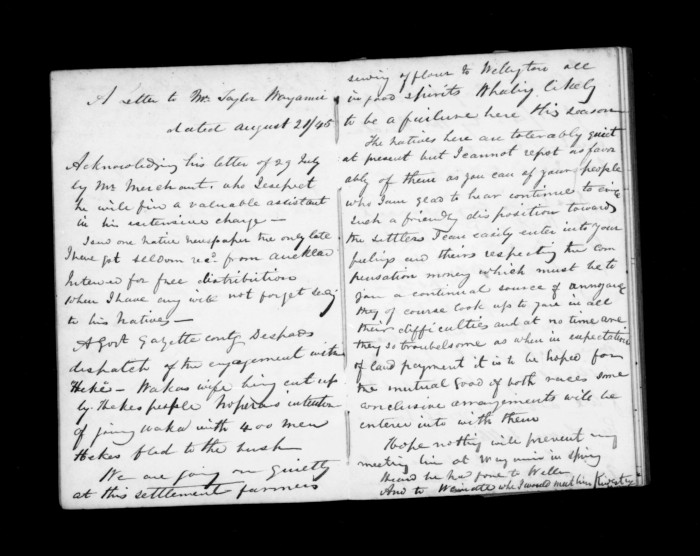 A Letter to Mr Taylor Wanganui
dated august 21/45
Acknowledging his letter of 29 July
by Mr Merchant, who I expect
he will find a valuable assistant
in his extensive charge—
I send one native newspaper the only late
I have got seldom recd from auckland
Intended for free distribution
When I have any will not forget
to his Natives—
A Govt Gazette contg Despards
dispatch of the engagement with
Heke— Wakas wife being cut up
by Hekes people intention
of joining waka with 400 men
Hekes fled to the bush
We are going on quietly
at this settlement farmers
sending flour to Wellington all
in good spirits Whaling likely
to be a failure here this season
The Natives here are tolerably quiet
at present but I cannot report as favor
ably of them as you can of your people
who I am glad to hear continue to
such a friendly disposition towards
the settlers I can easily enter into your
feelings and theirs respecting the com
pensation money which must be to
you a continual source of annoyance
they of course look up to you in all
their difficulties and at no time are
they so troublesome as when in expectation
of land payment it is to be hoped for
the mutual good of both races some
conclusive arrangements will be
entered into with them
Hope nothing will prevent my
meeting him at in spring
Heard he had gone to Welln
And to Waimate who I would